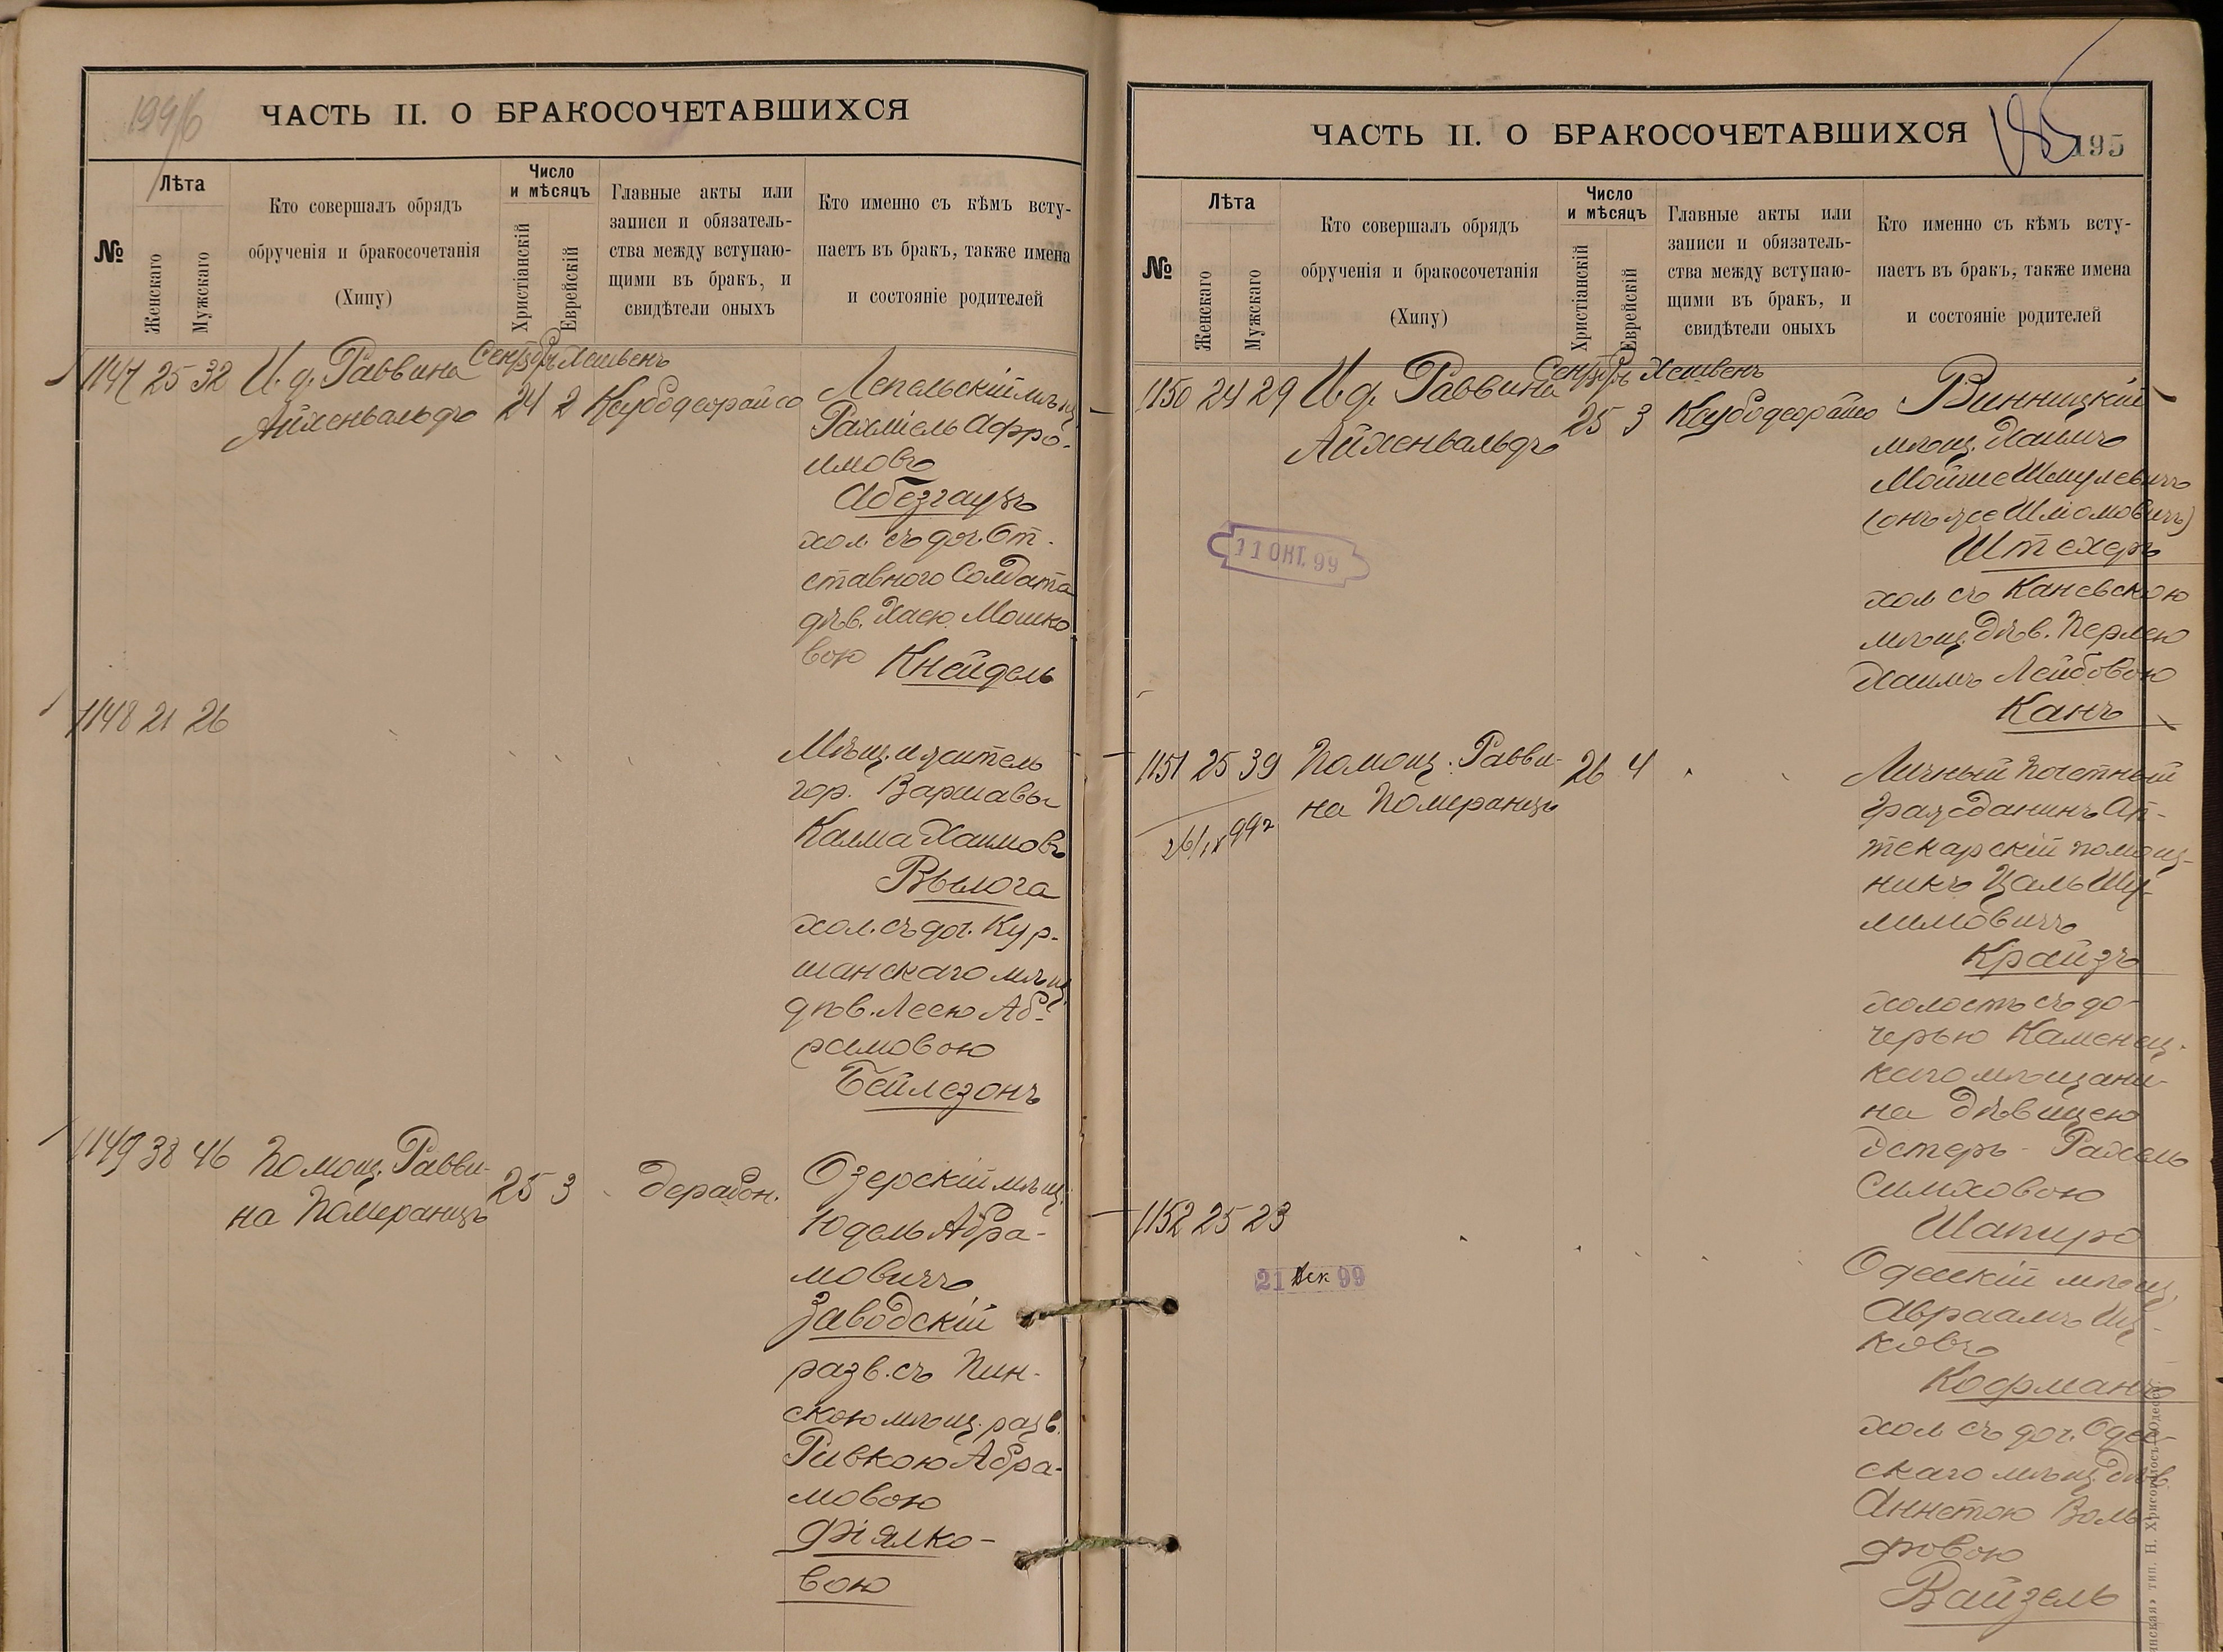 1996
ЧАСТЬ II. О БРАКОСОЧЕТАВШИХСЯ
№
Лѣта
Женскаго
Мужскаго
Кто совершалъ обрядъ
обрученія и бракосочетанія
(Хипу)
Число
и мѣсяцъ
Христіанскій
Еврейскій
Главные акты или
записи и обязатель-
ства между вступаю-
щими въ бракъ, и
свидѣтели оныхъ
Кто именно съ кѣмъ всту-
паетъ въ бракъ, также имена
и состояніе родителей
1147 25 32 И. д. Раввина
Айхенвальдъ
Сентябрь Хешвенъ
24 2 Ксубо деорайсо
Лепельскій мѣщ.
Рахміель Афро-
имовъ
Абезгаузъ
хол. съ доч. От-
ставного Солдата
дѣв. Хаею Мошко
вою Кнейдель
1148 21 26
Мѣщ. и житель
гор. Варшавы
Калма Хаимовъ
Вылога
хол. съ доч. Кур-
шанскаго мѣщ.
дѣв. Леею Аб-
рамовою
Бейлезонъ
1149 38 46 Помощ. Равви-
на Померанцъ
25 3 дерабон.
Озерскій мѣщ.
Юдель Абра-
мовичъ
Заводскій
разв. съ Пин-
скою мѣщ. разв.
Ривкою Абра-
мовою
Фіялко-
вою
ЧАСТЬ II. О БРАКОСОЧЕТАВШИХСЯ
195
№
Лѣта
Женскаго
Мужскаго
Кто совершалъ обрядъ
обрученія и бракосочетанія
(Хипу)
Число
и мѣсяцъ
Христіанскій
Еврейскій
Главные акты или
записи и обязатель-
ства между вступаю-
щими въ бракъ, и
свидѣтели оныхъ
Кто именно съ кѣмъ всту-
паетъ въ бракъ, также имена
и состояніе родителей
1150 24 29 И. д. Раввина
Айхенвальдъ
Сентябрь Хешвенъ
25 3 Ксубо деорайсо
11 ОКТ. 99
Винницкій
мѣщ. Хаимъ
Мойше Шмулевичъ
(онъ же Шліомовичъ)
Штехеръ
хол съ Каневскою
мѣщ. дѣв. Перлею
Хаимъ Лейбовою
Канъ
1151 25 39 Помощ. Равви-
на Померанцъ
26 4
26/IX 99 г
Личный Почетный
Гражданинъ Ап-
текарскій помощ-
никъ Цаль Шу-
лимовичъ
Крайзъ
холостъ съ до-
черью Каменец-
каго мѣщани-
на дѣвицею
Эстеръ - Рахель
Симховою
Шапиро
1152 25 23
21 Дек 99
Одесскій мѣщ.
Авраамъ Иц-
ковъ
Кофманъ
хол съ доч. Одес-
скаго мѣщ. дѣв.
Аннетою Воль-
фовою
Вайзель
тип. Н. Хрисогелосъ, Одесса.